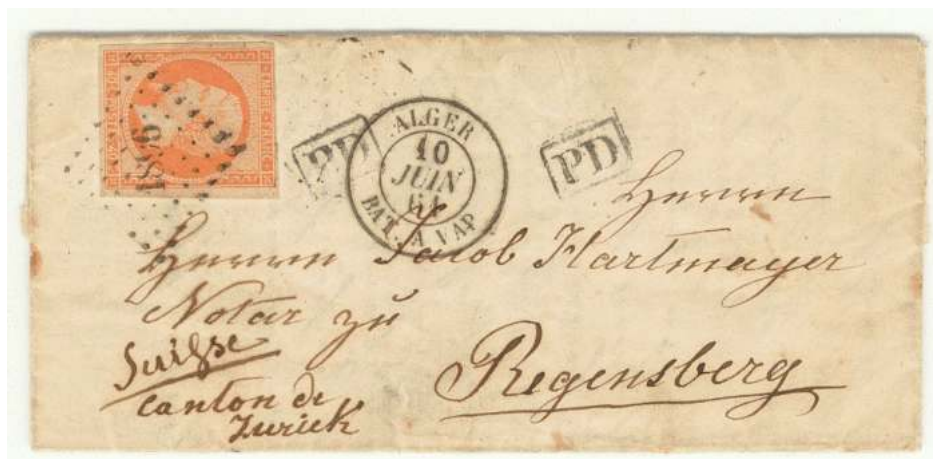 PD
ALGER
10
JUIN
61
BAT. A VAP.
PD
Herrn
Herrn Jacob Hartmayer
Notar zu
Regensberg
Suisse
canton de
Zurick